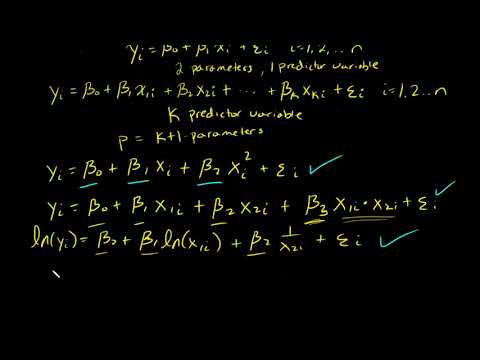 yᵢ = β₀ + β₁ xᵢ + εᵢ i=1,2,... n
2 parameters, 1 predictor variable
yᵢ = β₀ + β₁ x₁ᵢ + β₂ x₂ᵢ + ··· + βₖ xₖᵢ + εᵢ i=1,2...n
K predictor variable
p = k+1 parameters
yᵢ = β₀ + β₁ xᵢ + β₂ xᵢ² + εᵢ ✓
yᵢ = β₀ + β₁ x₁ᵢ + β₂ x₂ᵢ + β₃ x₁ᵢ · x₂ᵢ + εᵢ ✓
ln(yᵢ) = β₀ + β₁ ln(x₁ᵢ) + β₂ 1/x₂ᵢ + εᵢ ✓